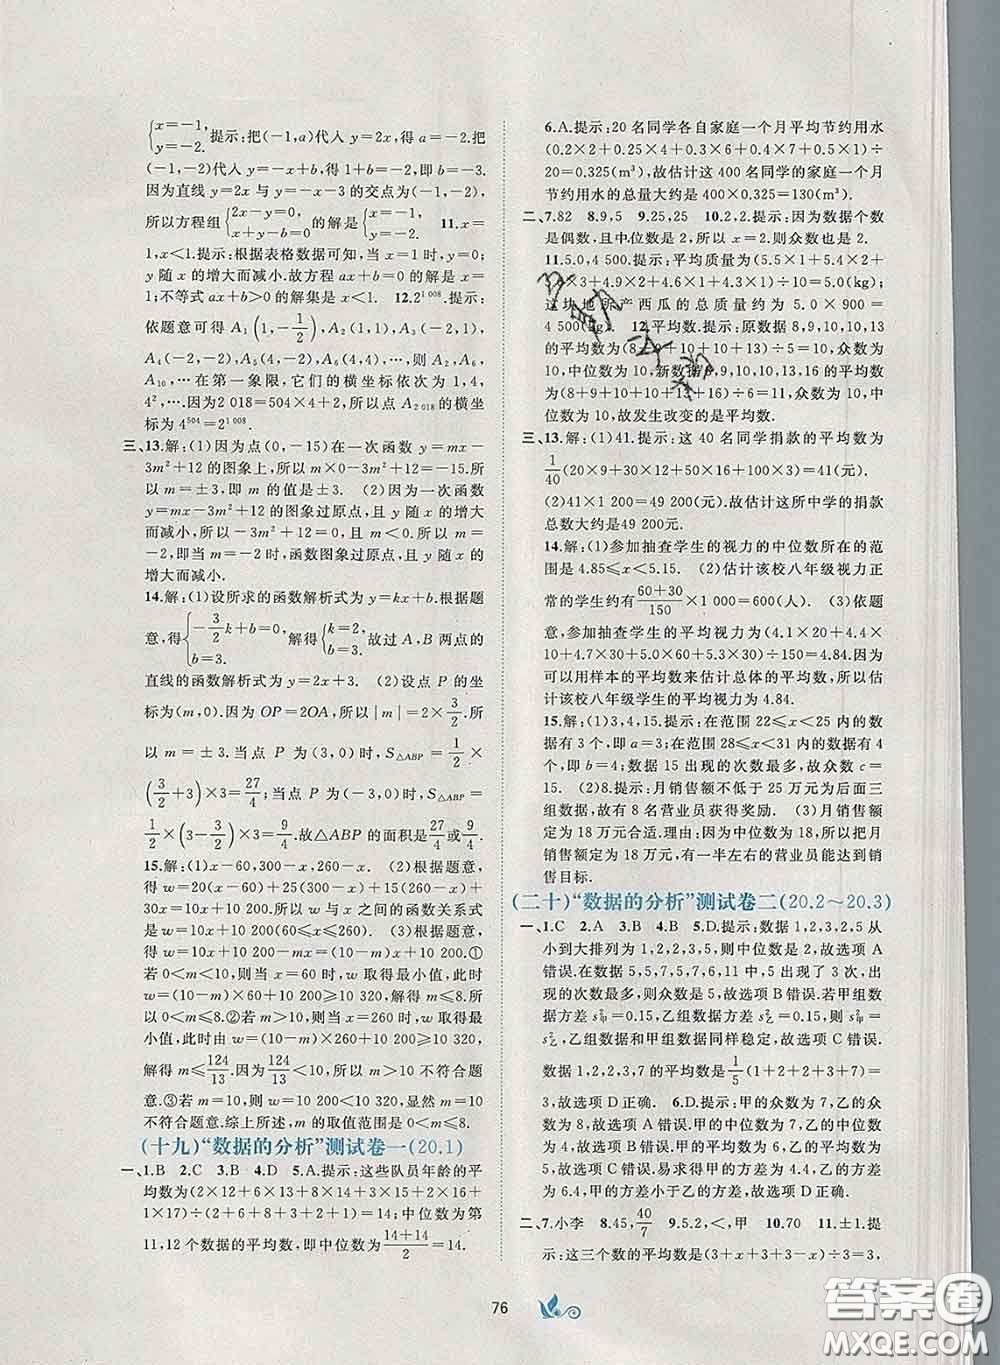 {x=-1, y=-2. 提示:把(-1,a)代入 y=2x,得 a=-2.把
(-1,-2)代入 y=-x+b,得-2=1+b,即 b=-3.
因为直线 y=2x 与 y=-x-3 的交点为(-1,-2),
所以方程组{2x-y=0, x+y-b=0 的解是{x=-1, y=-2. 11.x=
1,x<1.提示:根据表格数据可知,当 x=1 时,y=0,
y 随 x 的增大而减小.故方程 ax+b=0 的解是 x=
1;不等式 ax+b>0 的解集是 x<1. 12.2^1 008.提示:
依题意可得 A₁(1,-1/2),A₂(1,1),A₃(-2,1),
A₄(-2,-2),A₅(4,-2),…,则 A₂,A₆,
A₁₀,…在第一象限,它们的横坐标依次为 1,4,
4²,….因为2 018=504×4+2,所以点 A₂ ₀₁₈的横坐
标为 4^504=2^1 008.
三、13.解:(1)因为点(0,-15)在一次函数 y=mx-
3m²+12 的图象上,所以 m×0-3m²+12=-15.所
以 m=±3,即 m 的值是±3. (2)因为一次函数
y=mx-3m²+12 的图象过原点,且 y 随 x 的增大
而减小,所以-3m²+12=0,且 m<0.所以 m=
-2,即当 m=-2时,函数图象过原点,且 y 随 x 的
增大而减小.
14.解:(1)设所求的函数解析式为 y=kx+b.根据题
意,得{-3/2k+b=0, b=3. 解得{k=2, b=3. 故过 A,B 两点的
直线的函数解析式为 y=2x+3. (2)设点 P 的坐
标为(m,0).因为 OP=2OA,所以|m|=2×3/2.所
以 m=±3.当点 P 为(3,0)时,S△ABP=1/2×
(3/2+3)×3=27/4;当点 P 为(-3,0)时,S△ABP=
1/2×(3-3/2)×3=9/4.故△ABP 的面积是27/4或9/4.
15.解:(1)x-60,300-x,260-x. (2)根据题意,
得 w=20x+25(300-x)+15(x-60)+30(260-x).
整理,得 w=10x+10 200.故w与x之间的函数关系式
是 w=10x+10 200(60≤x≤260). (3)根据题意,
得 w=10x+10 200-mx=(10-m)x+10 200.①
若 0<m<10,则当 x=60 时,w 取得最小值,此时
w=(10-m)×60+10 200≥10 320,解得 m≤8.
所以 0<m≤8.②若 m>10,则当 x=260 时,w 取得
最小值,此时 w=(10-m)×260+10 200≥10 320,
解得 m≤124/13.因为124/13<10,所以 m≤124/13不符合题
意.③若 m=10,则 w=10 200<10 320,不符合题意.
不符合题意.综上所述,m 的取值范围是 0<m≤8.
(十九)“数据的分析”测试卷一(20.1)
一、1.B 2.C 3.B 4.D 5.A.提示:这些队员年龄的平
均数为(2×12+6×13+8×14+3×15+2×16+
1×17)÷(2+6+8+3+2+1)=14;中位数为第
11,12 个数据的平均数,即中位数为(14+14)/2=14.
6.A.提示:20名同学各自家庭一个月平均节约用水
(0.2×2+0.25×4+0.3×6+0.4×7+0.5×1)÷
20=0.325(m³),故估计这 400 名同学的家庭一个月
节约用水的总量大约是 400×0.325=130(m³).
二、7.82 8.9,5 9.25,25 10.2,2.提示:因为数据个数
是偶数,且中位数是 2,所以 x=2.则众数也是 2.
11.5.0,4 500.提示:平均质量为(5.5×2+5.4×2+
5×3+4.9×2+4.6×1+4.3×1)÷10=5.0(kg),
这块地所产西瓜的总质量约为 5.0×900=
4 500(kg). 12.平均数.提示:原数据 8,9,10,10,13
的平均数为(8+9+10+10+13)÷5=10,众数为 10,
中位数为 10,新数据 8,9,10,10,13,16 的平均数为
(8+9+10+10+13+16)÷6=11,众数为 10,
中位数为 10,故发生改变的是平均数.
三、13.解:(1)41.提示:这 40 名同学捐款的平均数为
1/40(20×9+30×12+50×16+100×3)=41(元).
(2)41×1 200=49 200(元).故估计这所中学的捐款
总数大约是49 200元.
14.解:(1)参加抽查学生的视力的中位数所在的范
围是 4.85≤x<5.15. (2)估计该校八年级视力正
常的学生约有(60+30)/150×1 000=600(人). (3)依题
意,参加抽查学生的平均视力为(4.1×20+4.4×
10+4.7×30+5.0×60+5.3×30)÷150=4.84.因为
可以用样本的平均数来估计总体的平均数,所以估
计该校八年级学生的平均视力为 4.84.
15.解:(1)3,4,15.提示:在范围 22≤x<25 内的数
据有 3 个,即 a=3;在范围 28≤x<31 内的数据有 4
个,即 b=4;数据 15 出现的次数最多,故众数 c=
15. (2)8.提示:月销售额不低于 25 万元为后面三
组数据,故有 8 名营业员获得奖励. (3)月销售额
定为 18 万元合适.理由:因为中位数为 18,所以把月
销售额定为 18 万元,有一半左右的营业员能达到销
售目标.
(二十)“数据的分析”测试卷二(20.2～20.3)
一、1.C 2.A 3.B 4.B 5.D.提示:数据 1,3,2,5 从
小到大排列为 1,2,2,3,5,则中位数是 2,故选项 A
错误.在数据 5,5,7,5,7,6,11 中,5 出现了 3 次,出
现次数最多,则众数是 5,故选项 B 错误.若甲组数
据方差 s²甲=0.15,乙组数据方差 s²乙=0.15,则 s²甲=
s²乙,乙组数据和甲组数据同样稳定,故选项 C 错误.
数据 1,2,2,3,7 的平均数是1/5(1+2+2+3+7)=
3,故选项 D 正确. 6.D.提示:甲的众数为 7,乙的众
数为 8,故选项 A 错误.甲的中位数为 7,乙的中位数
为 4,故选项 B 错误.甲的平均数为 6,乙的平均数为
5,故选项 C 错误.易求得甲的方差为 4.4,乙的方差
为 6.4,甲的方差小于乙的方差,故选项 D 正确.
二、7.小李 8.45,40/7 9.5.2,<,甲 10.70 11.±1.提
示:这三个数的平均数是(3+x+3+3-x)÷3=3,
76
答案圈
MXQE.COM